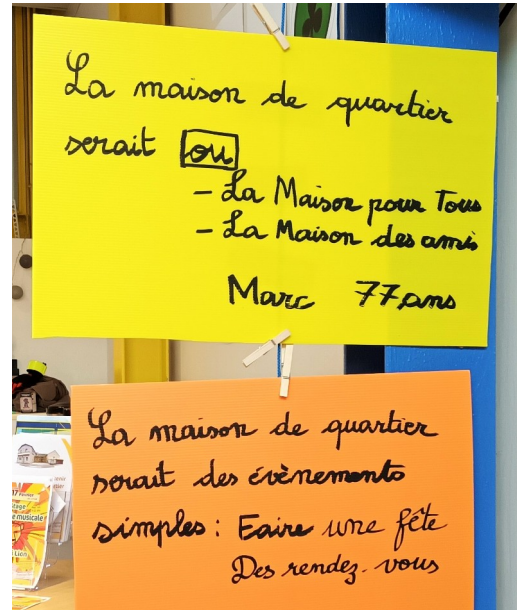 La maison de quartier
serait ou
- La Maison pour Tous
- La Maison des amis
Marc 77 ans
La maison de quartier
serait des évènements
simples : Faire une fête
Des rendez-vous
musicale
Lion